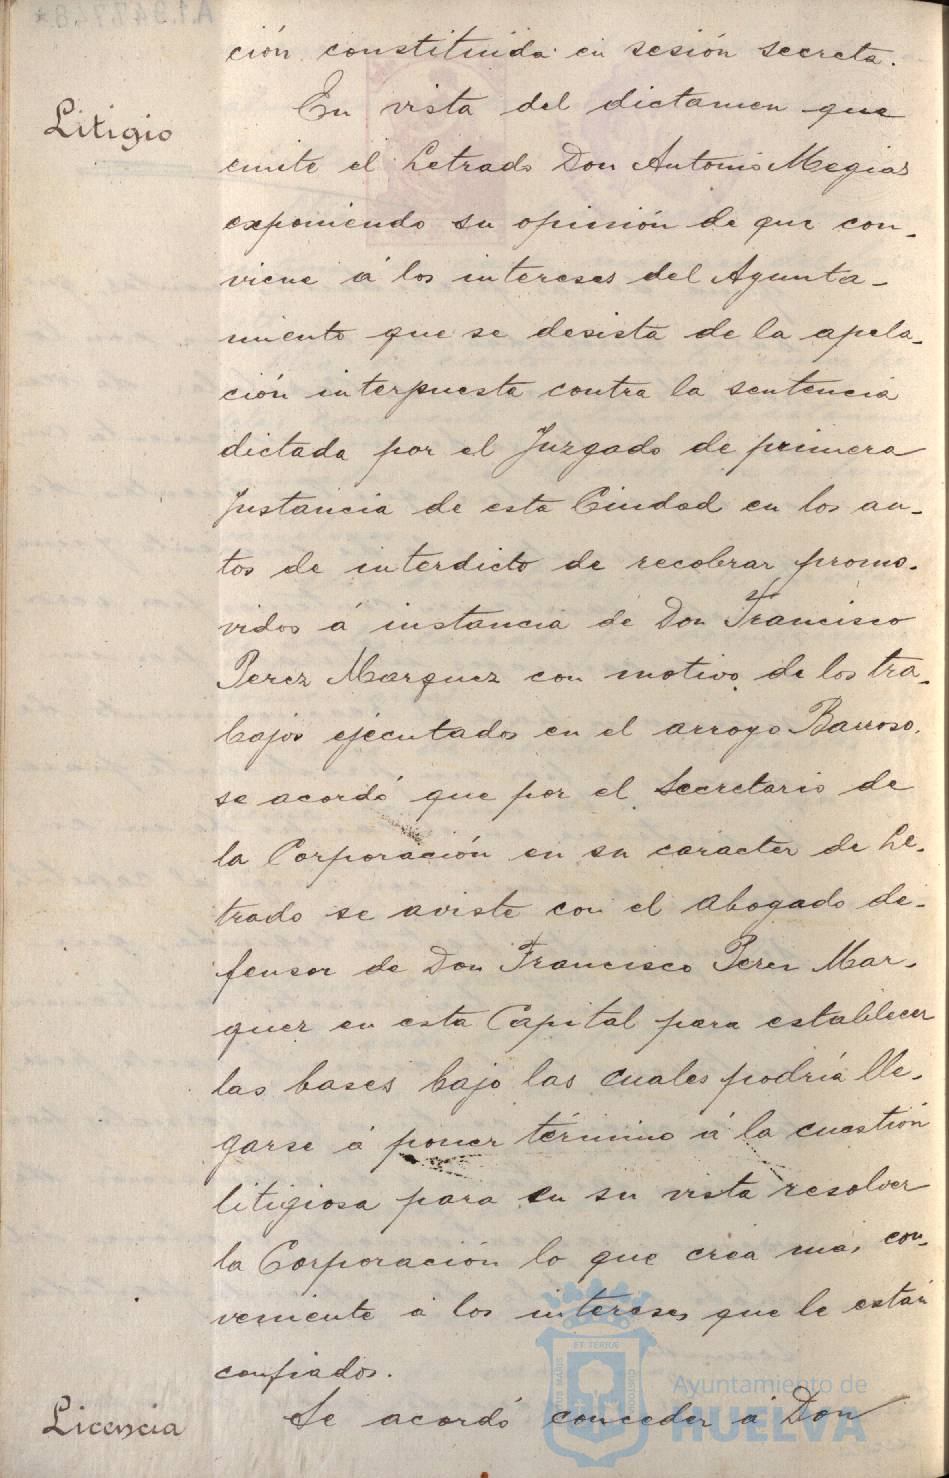 ción constituida en sesión secreta.
Litigio
En vista del dictamen que
emite el Letrado Don Antonio Megias
exponiendo su opinión de que con-
viene á los intereses del Ayunta-
miento que se desista de la apela-
ción interpuesta contra la sentencia
dictada por el Juzgado de primera
Instancia de esta Ciudad en los au-
tos de interdicto de recobrar promo-
vidos á instancia de Don Francisco
Perez Marquez con motivo de los tra-
bajos ejecutados en el arroyo Barroso,
se acordó que por el Secretario de
la Corporación en su caracter de Le-
trado se aviste con el abogado de-
fensor de Don Francisco Perez Mar-
quez en esta Capital para establecer
las bases bajo las cuales podría lle-
garse á poner término á la cuestión
litigiosa para en su vista resolver
la Corporación lo que crea mas con-
veniente á los intereses que le están
confiados.
Licencia
Se acordó conceder á Don
Ayuntamiento de
HUELVA